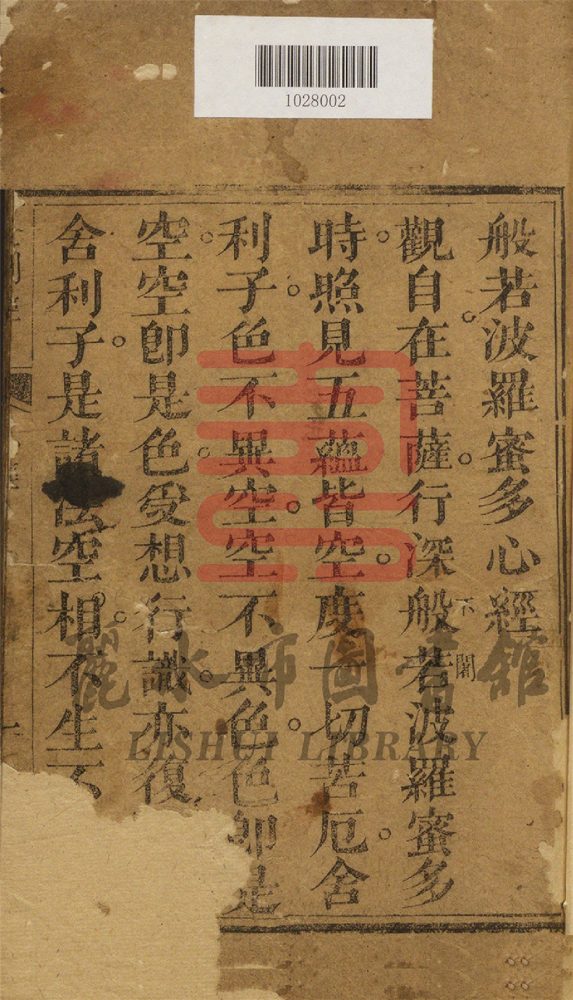 1028002
般若波羅蜜多心經
觀自在菩薩。行深般若波羅蜜多
時。照見五蘊皆空。度一切苦厄。舍
利子。色不異空。空不異色。色卽是
空。空卽是色。受想行識。亦復
舍利子。是諸法空相。不生不
下閣
麗水市圖書館
LISHUI LIBRARY